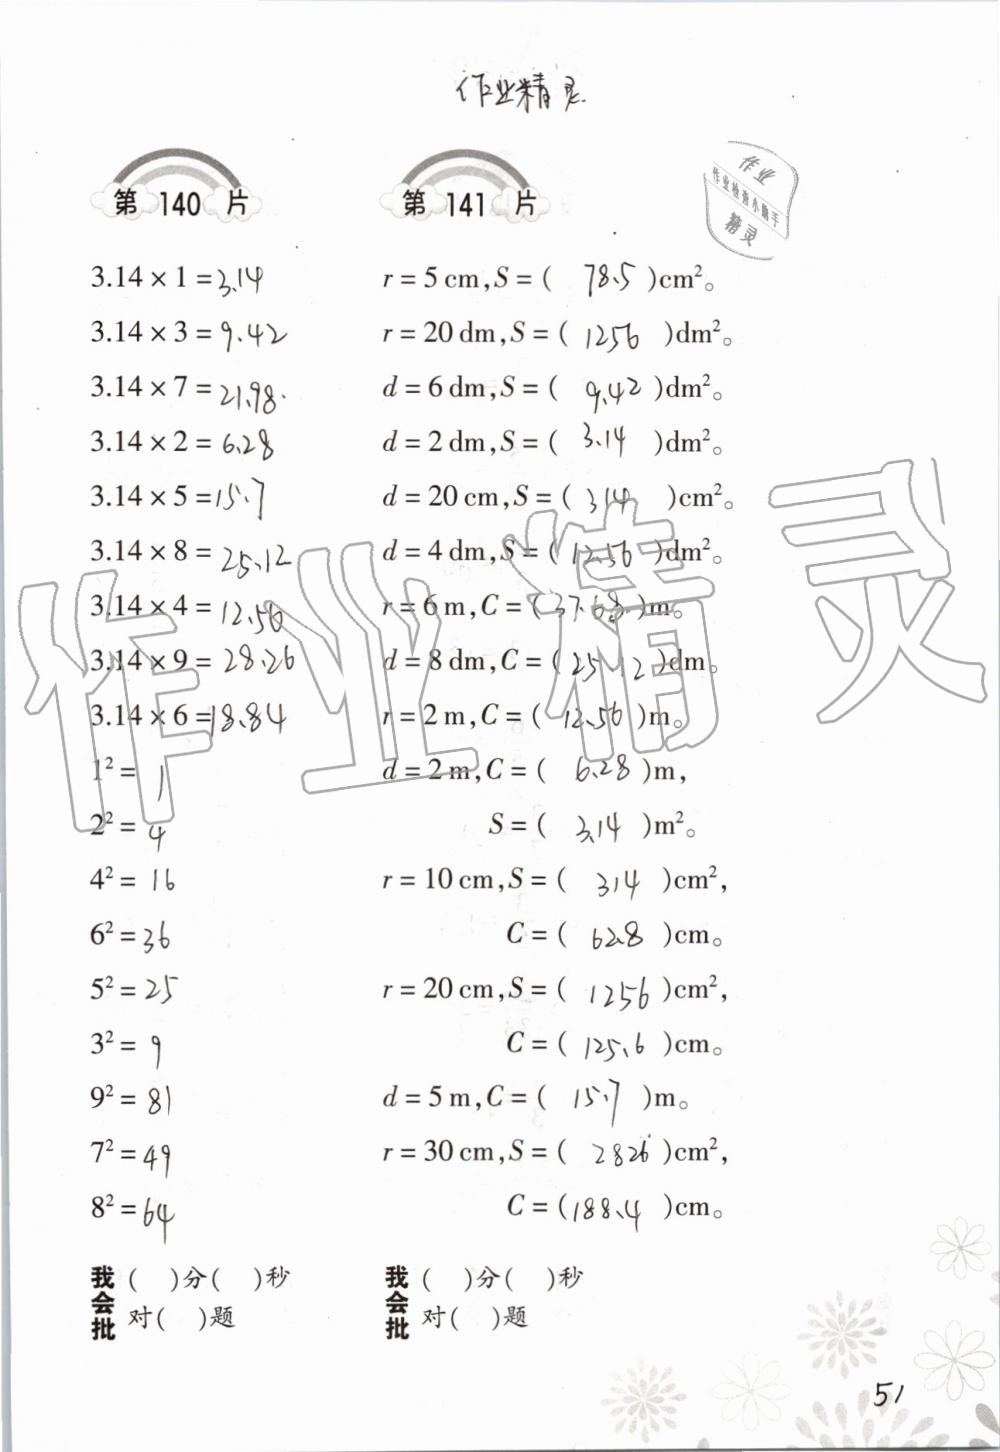 作业精灵
作业
作业检查小助手
精灵
第 140 片
3.14 × 1 = 3.14
3.14 × 3 = 9.42
3.14 × 7 = 21.98
3.14 × 2 = 6.28
3.14 × 5 = 15.7
3.14 × 8 = 25.12
3.14 × 4 = 12.56
3.14 × 9 = 28.26
3.14 × 6 = 18.84
1² = 1
2² = 4
4² = 16
6² = 36
5² = 25
3² = 9
9² = 81
7² = 49
8² = 64
我会批
( )分( )秒
对( )题
第 141 片
r = 5 cm,S = ( 78.5 )cm²。
r = 20 dm,S = ( 1256 )dm²。
d = 6 dm,S = ( 9.42 )dm²。
d = 2 dm,S = ( 3.14 )dm²。
d = 20 cm,S = ( 314 )cm²。
d = 4 dm,S = ( 12.56 )dm²。
r = 6 m,C = ( 37.68 )m。
d = 8 dm,C = ( 25.12 )dm。
r = 2 m,C = ( 12.56 )m。
d = 2 m,C = ( 6.28 )m,
S = ( 3.14 )m²。
r = 10 cm,S = ( 314 )cm²,
C = ( 62.8 )cm。
r = 20 cm,S = ( 1256 )cm²,
C = ( 125.6 )cm。
d = 5 m,C = ( 15.7 )m。
r = 30 cm,S = ( 2826 )cm²,
C = ( 188.4 )cm。
我会批
( )分( )秒
对( )题
作业精灵
51